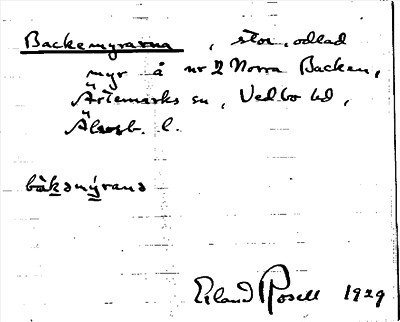 Backemyrarna, stor, odlad
myr å nr 2 Norra Backen,
Ärtemarks sn, Vedbo hd,
Älvsb. l.
bàkəmýrana
Erland Rosell 1929